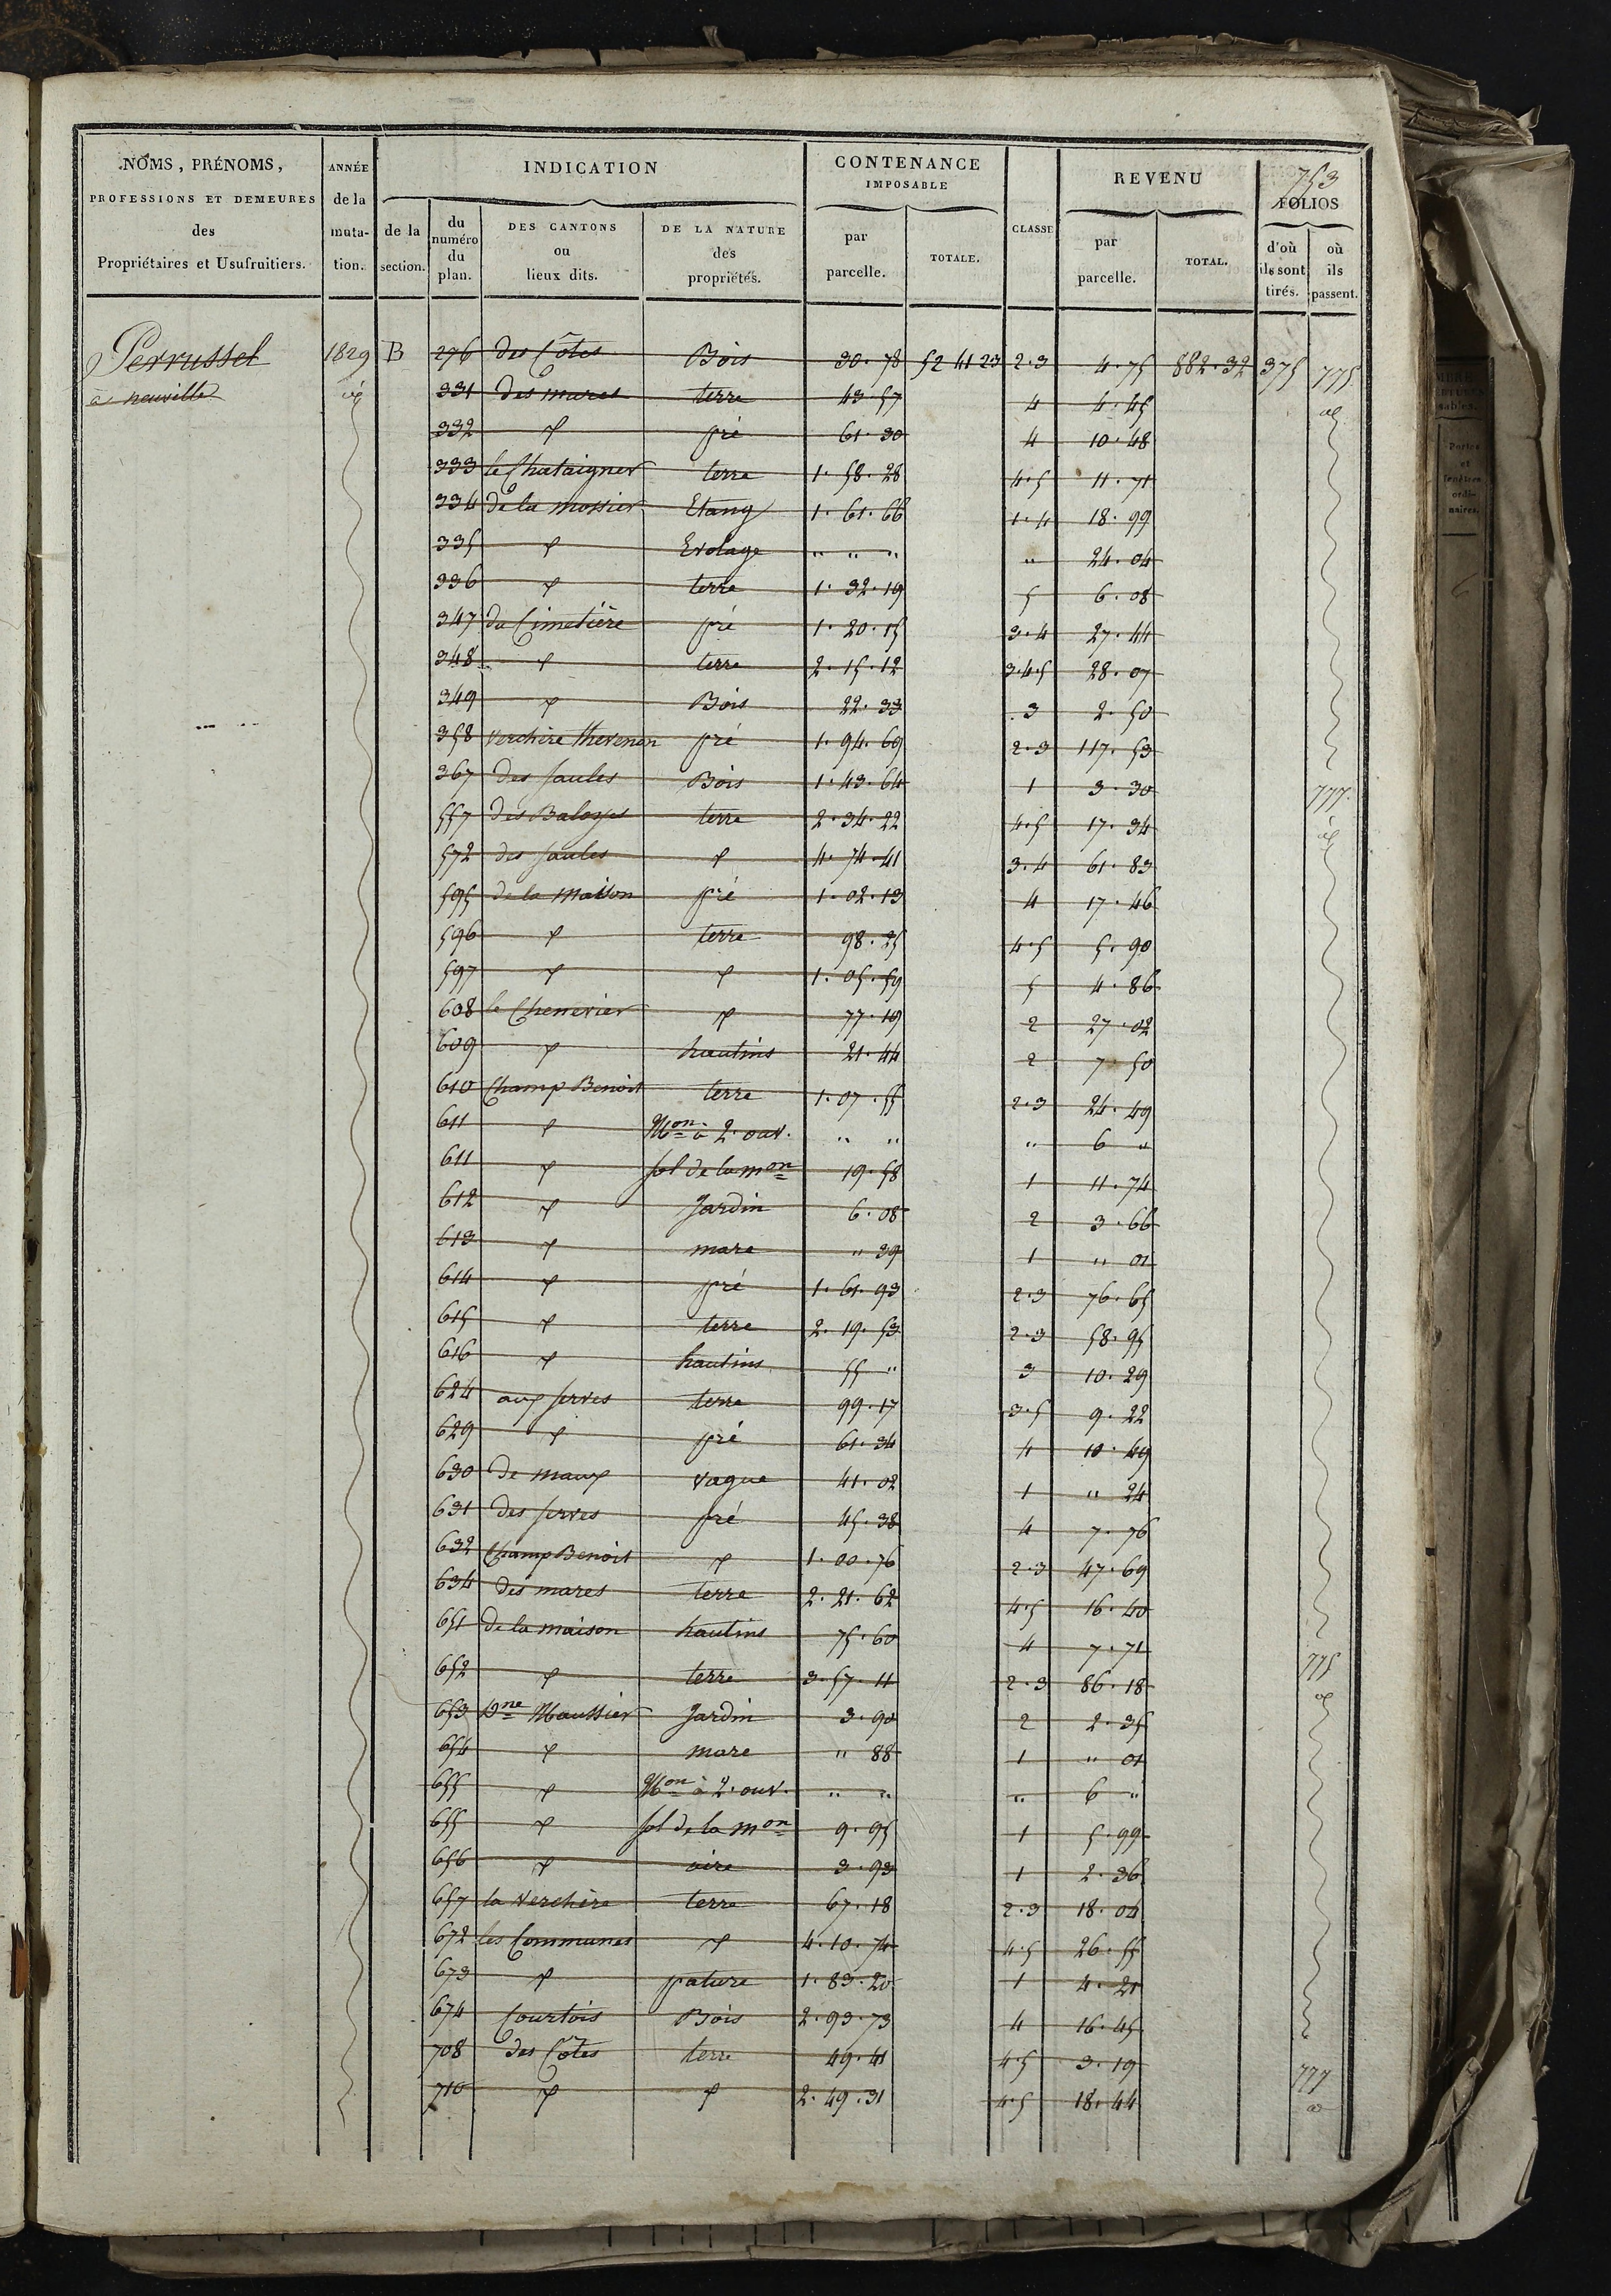 753
NOMS, PRÉNOMS, PROFESSIONS ET DEMEURES des Propriétaires et Usufruitiers. | ANNÉE de la muta-tion. | INDICATION | CONTENANCE IMPOSABLE | CLASSE | REVENU | FOLIOS
de la section. | du numéro du plan. | DES CANTONS ou lieux dits. | DE LA NATURE des propriétés. | par parcelle. | TOTALE. | par parcelle. | TOTAL. | d'où ils sont tirés. | où ils passent.
Perrussel 1829 B 276 des Côtes Bois 30.78 52 41 23 2.3 4.75 882.32 375 775
à neuville id 331 des mares terre 43.57 4 4.45 id
332 d° pré 61.30 4 10.48
333 le Chataigner terre 1.58.28 4.5 11.71
334 de la Mossier Etang 1.61.66 1.4 18.99
335 d° Evolage " " " " 24.04
336 d° terre 1.32.19 5 6.08
347 du Cimetière pré 1.20.15 3.4 27.44
348 d° terre 2.15.12 3.4.5 28.07
349 d° Bois 22.33 3 2.50
358 Verchère thevenon pré 1.94.69 2.3 117.53
367 des saules Bois 1.43.64 1 3.30 777
557 des Baloges terre 2.34.22 4.5 17.34 id
572 des saules d° 4.74.41 3.4 61.83
595 de la Maison pré 1.02.13 4 17.46
596 d° terre 98.25 4.5 5.90
597 d° d° 1.05.59 5 4.86
608 le Chenevier d° 77.19 2 27.02
609 d° hautins 21.44 2 7.50
610 Champ Benoit terre 1.07.55 2.3 24.49
611 d° Mon à 2. ouv. " " " 6 "
611 d° sol de la mon 19.58 1 11.74
612 d° Jardin 6.08 2 3.66
613 d° mare " 39 1 " 01
614 d° pré 1.61.93 2.3 76.65
615 d° terre 2.19.53 2.3 58.95
616 d° hautins 55 " 3 10.29
624 aux serves terre 99.17 3.5 9.22
629 d° pré 61.34 4 10.49
630 de maux vague 41.02 1 " 24
631 des serves pré 45.38 4 7.76
632 Champ Benoit d° 1.00.76 2.3 47.69
634 des mares terre 2.21.62 4.5 16.40
651 de la maison hautins 75.60 4 7.71
652 d° terre 3.57.11 2.3 86.18 775
653 Dne Maussier Jardin 3.90 2 2.35 id
654 d° mare " 88 1 " 01
655 d° Mon à 2. ouv. " " " 6 "
655 d° sol de la mon 9.95 1 5.99
656 d° aire 3.93 1 2.36
657 la Verchère terre 67.18 2.3 18.04
672 les Communes d° 4.10.74 4.5 26.55
673 d° pature 1.83.20 1 4.21
674 Courtois Bois 2.93.73 4 16.45
708 des Côtes terre 49.41 4.5 3.19 777
710 d° d° 2.49.31 4.5 18.44